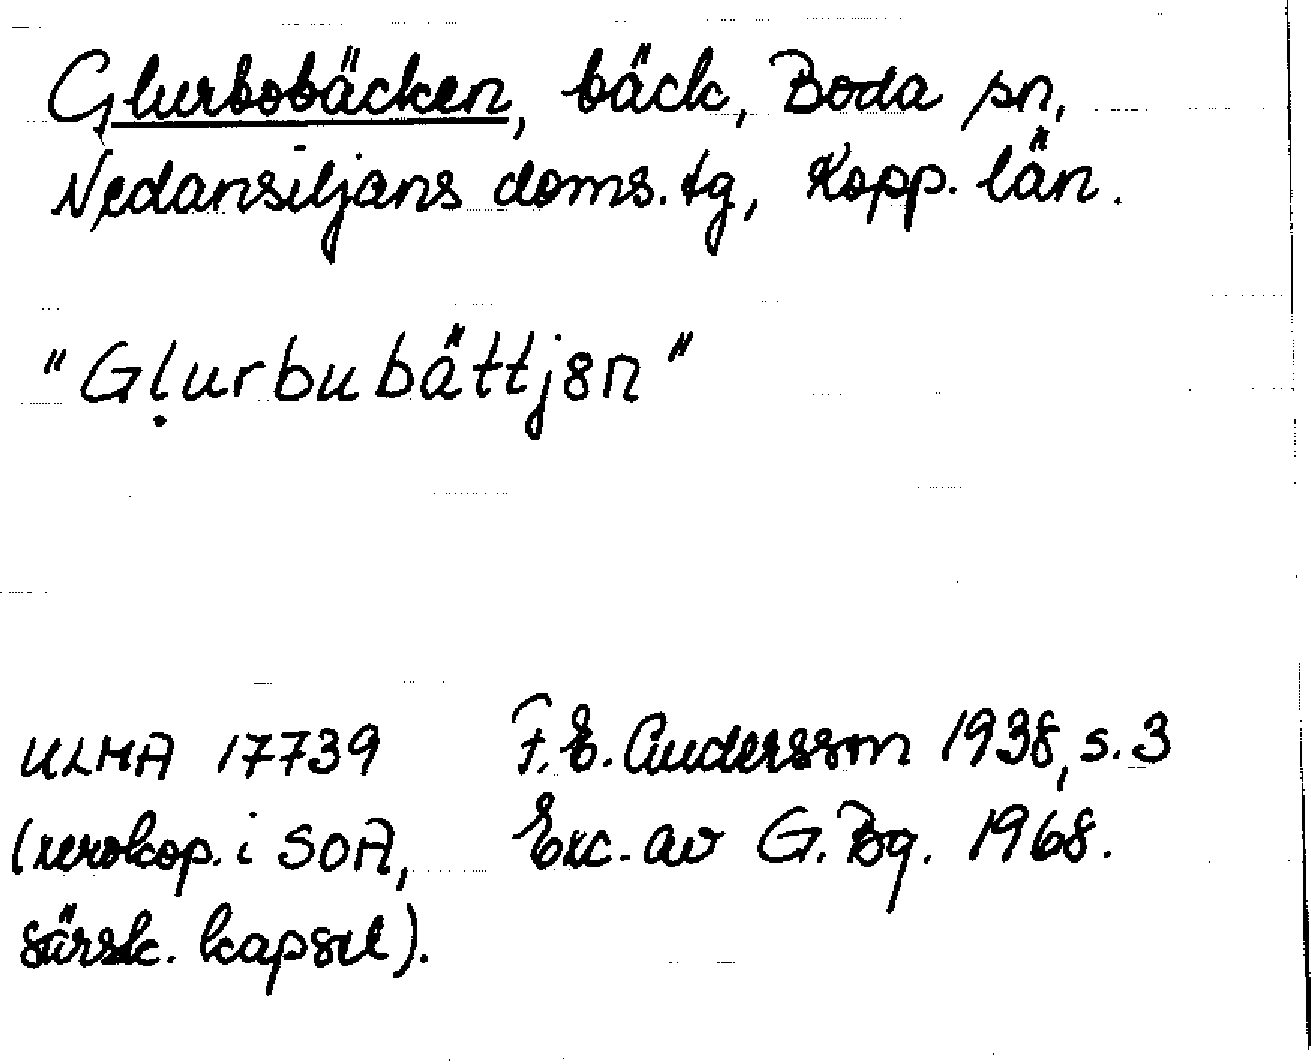 Glurbobäcken, bäck, Boda sn,
Nedansiljans doms. tg, Kopp. län.
"Gḷurbubättjsn"
ULMA 17739 F. E. Andersson 1938, s. 3
(xerokop. i SOA, Exc. av G. Bg. 1968.
särsk. kapsel).